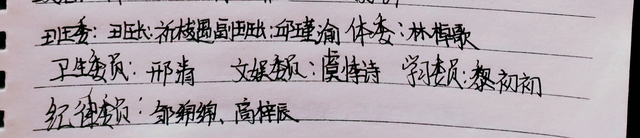 班委：班长：祈枝遇 副班长：邱瑾渝 体委：林梓歌
卫生委员：邢清 文娱委员：虞博诗 学习委员：黎初初
纪律委员：邹绵绵、高梓辰